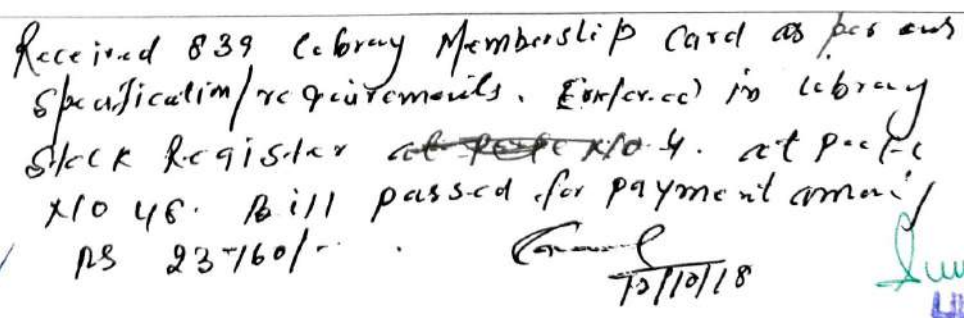 Received 839 Library Membership Card as per our
Specification/requirements. Entered in library
Stock Register at page No 4. at page
No 46. Bill passed for payment amoun
RS 23760/-
12/10/18